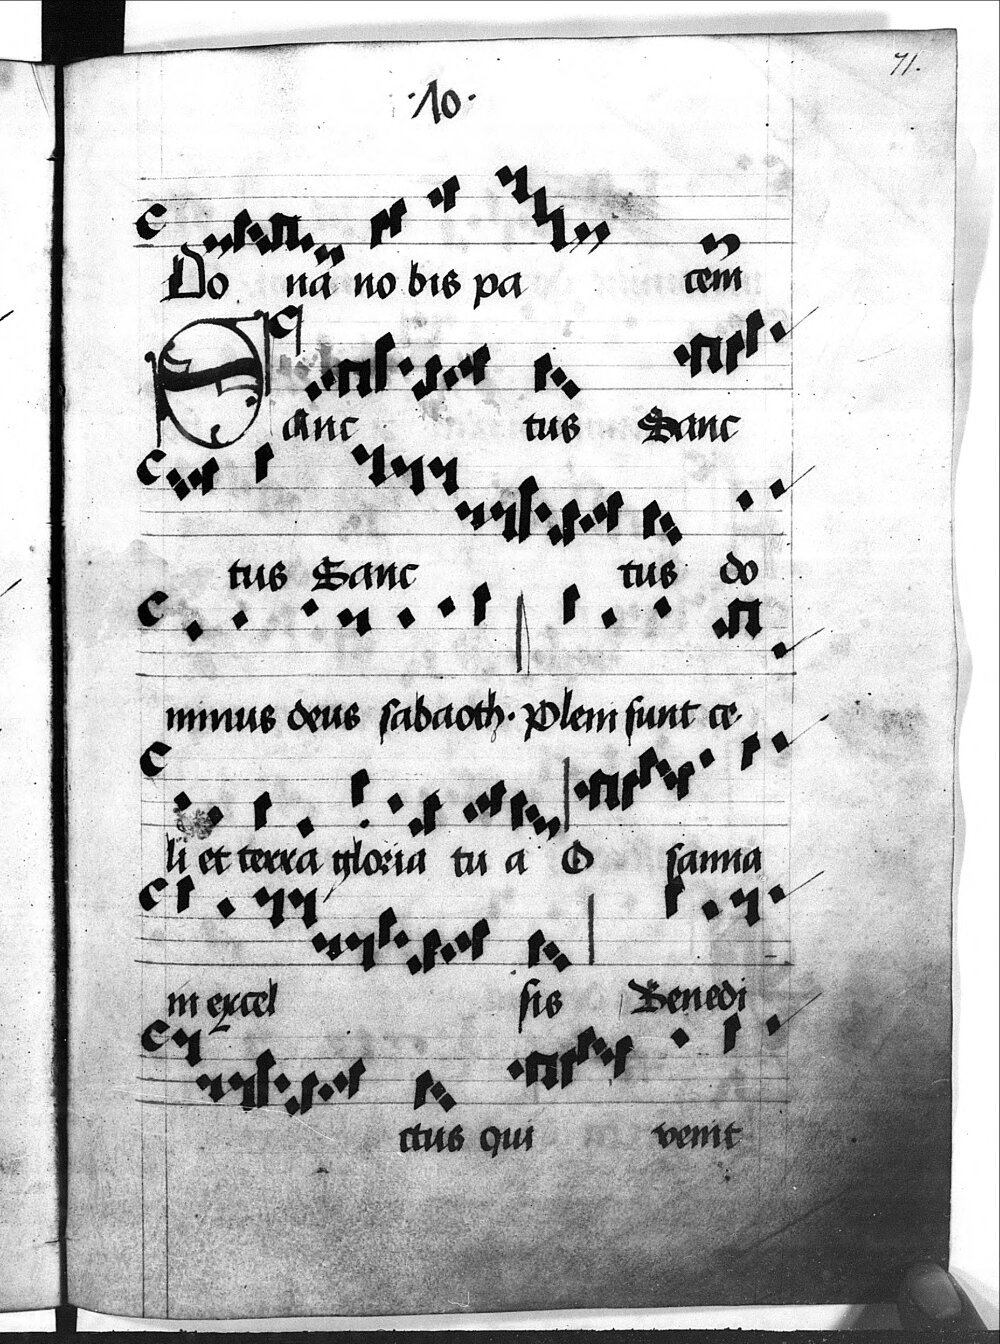 71.
·10·
Do na no bis pa cem
Sanc tus Sanc
tus Sanc tus do
minus deus sabaoth · Pleni sunt ce
li et terra gloria tu a O sanna
in excel sis Benedi
ctus qui venit